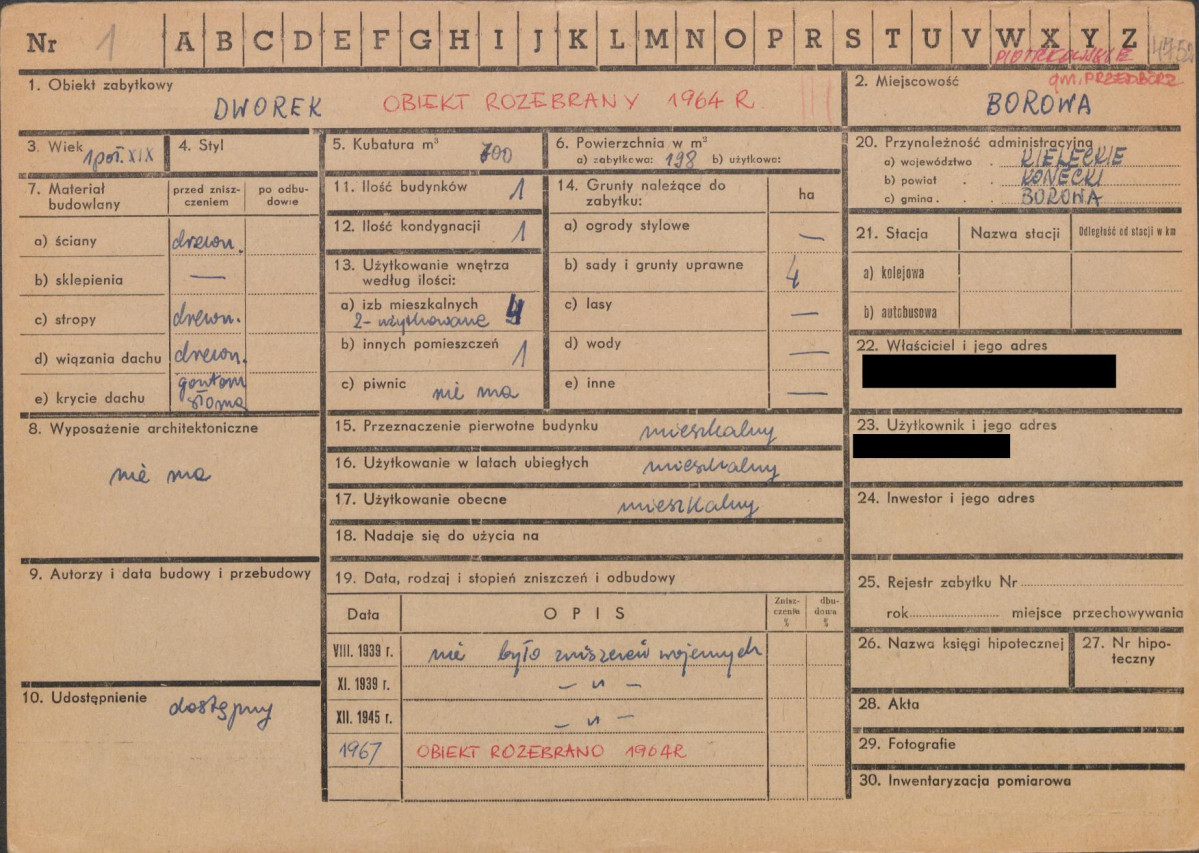 Nr 1 A B C D E F G H I J K L M N O P R S T U V W X Y Z
PIOTRKOWSKIE
gm. PRZEDBÓRZ
1. Obiekt zabytkowy
DWOREK OBIEKT ROZEBRANY 1964 R
2. Miejscowość
BOROWA
3. Wiek 1 poł. XIX
4. Styl
5. Kubatura m³ 700
6. Powierzchnia w m²
a) zabytkowa: 198 b) użytkowa:
7. Materiał budowlany
przed zniszczeniem
po odbudowie
a) ściany drewn.
b) sklepienia —
c) stropy drewn.
d) wiązania dachu drewn.
e) krycie dachu gontom słomą
8. Wyposażenie architektoniczne
nie ma
9. Autorzy i data budowy i przebudowy
10. Udostępnienie dostępny
11. Ilość budynków 1
12. Ilość kondygnacji 1
13. Użytkowanie wnętrza według ilości:
a) izb mieszkalnych 4
2 - użytkowane
b) innych pomieszczeń 1
c) piwnic nie ma
14. Grunty należące do zabytku:
ha
a) ogrody stylowe —
b) sady i grunty uprawne 4
c) lasy —
d) wody —
e) inne —
15. Przeznaczenie pierwotne budynku mieszkalny
16. Użytkowanie w latach ubiegłych mieszkalny
17. Użytkowanie obecne mieszkalny
18. Nadaje się do użycia na
19. Data, rodzaj i stopień zniszczeń i odbudowy
Data OPIS Zniszczenie % dbudowa %
VIII. 1939 r. nie było zniszczeń wojennych
XI. 1939 r. — „ —
XII. 1945 r. — „ —
1967 OBIEKT ROZEBRANO 1964R
20. Przynależność administracyjna
a) województwo . KIELECKIE
b) powiat . . KONECKI
c) gmina . . BOROWA
21. Stacja Nazwa stacji Odległość od stacji w km
a) kolejowa
b) autobusowa
22. Właściciel i jego adres
23. Użytkownik i jego adres
24. Inwestor i jego adres
25. Rejestr zabytku Nr
rok miejsce przechowywania
26. Nazwa księgi hipotecznej
27. Nr hipoteczny
28. Akta
29. Fotografie
30. Inwentaryzacja pomiarowa